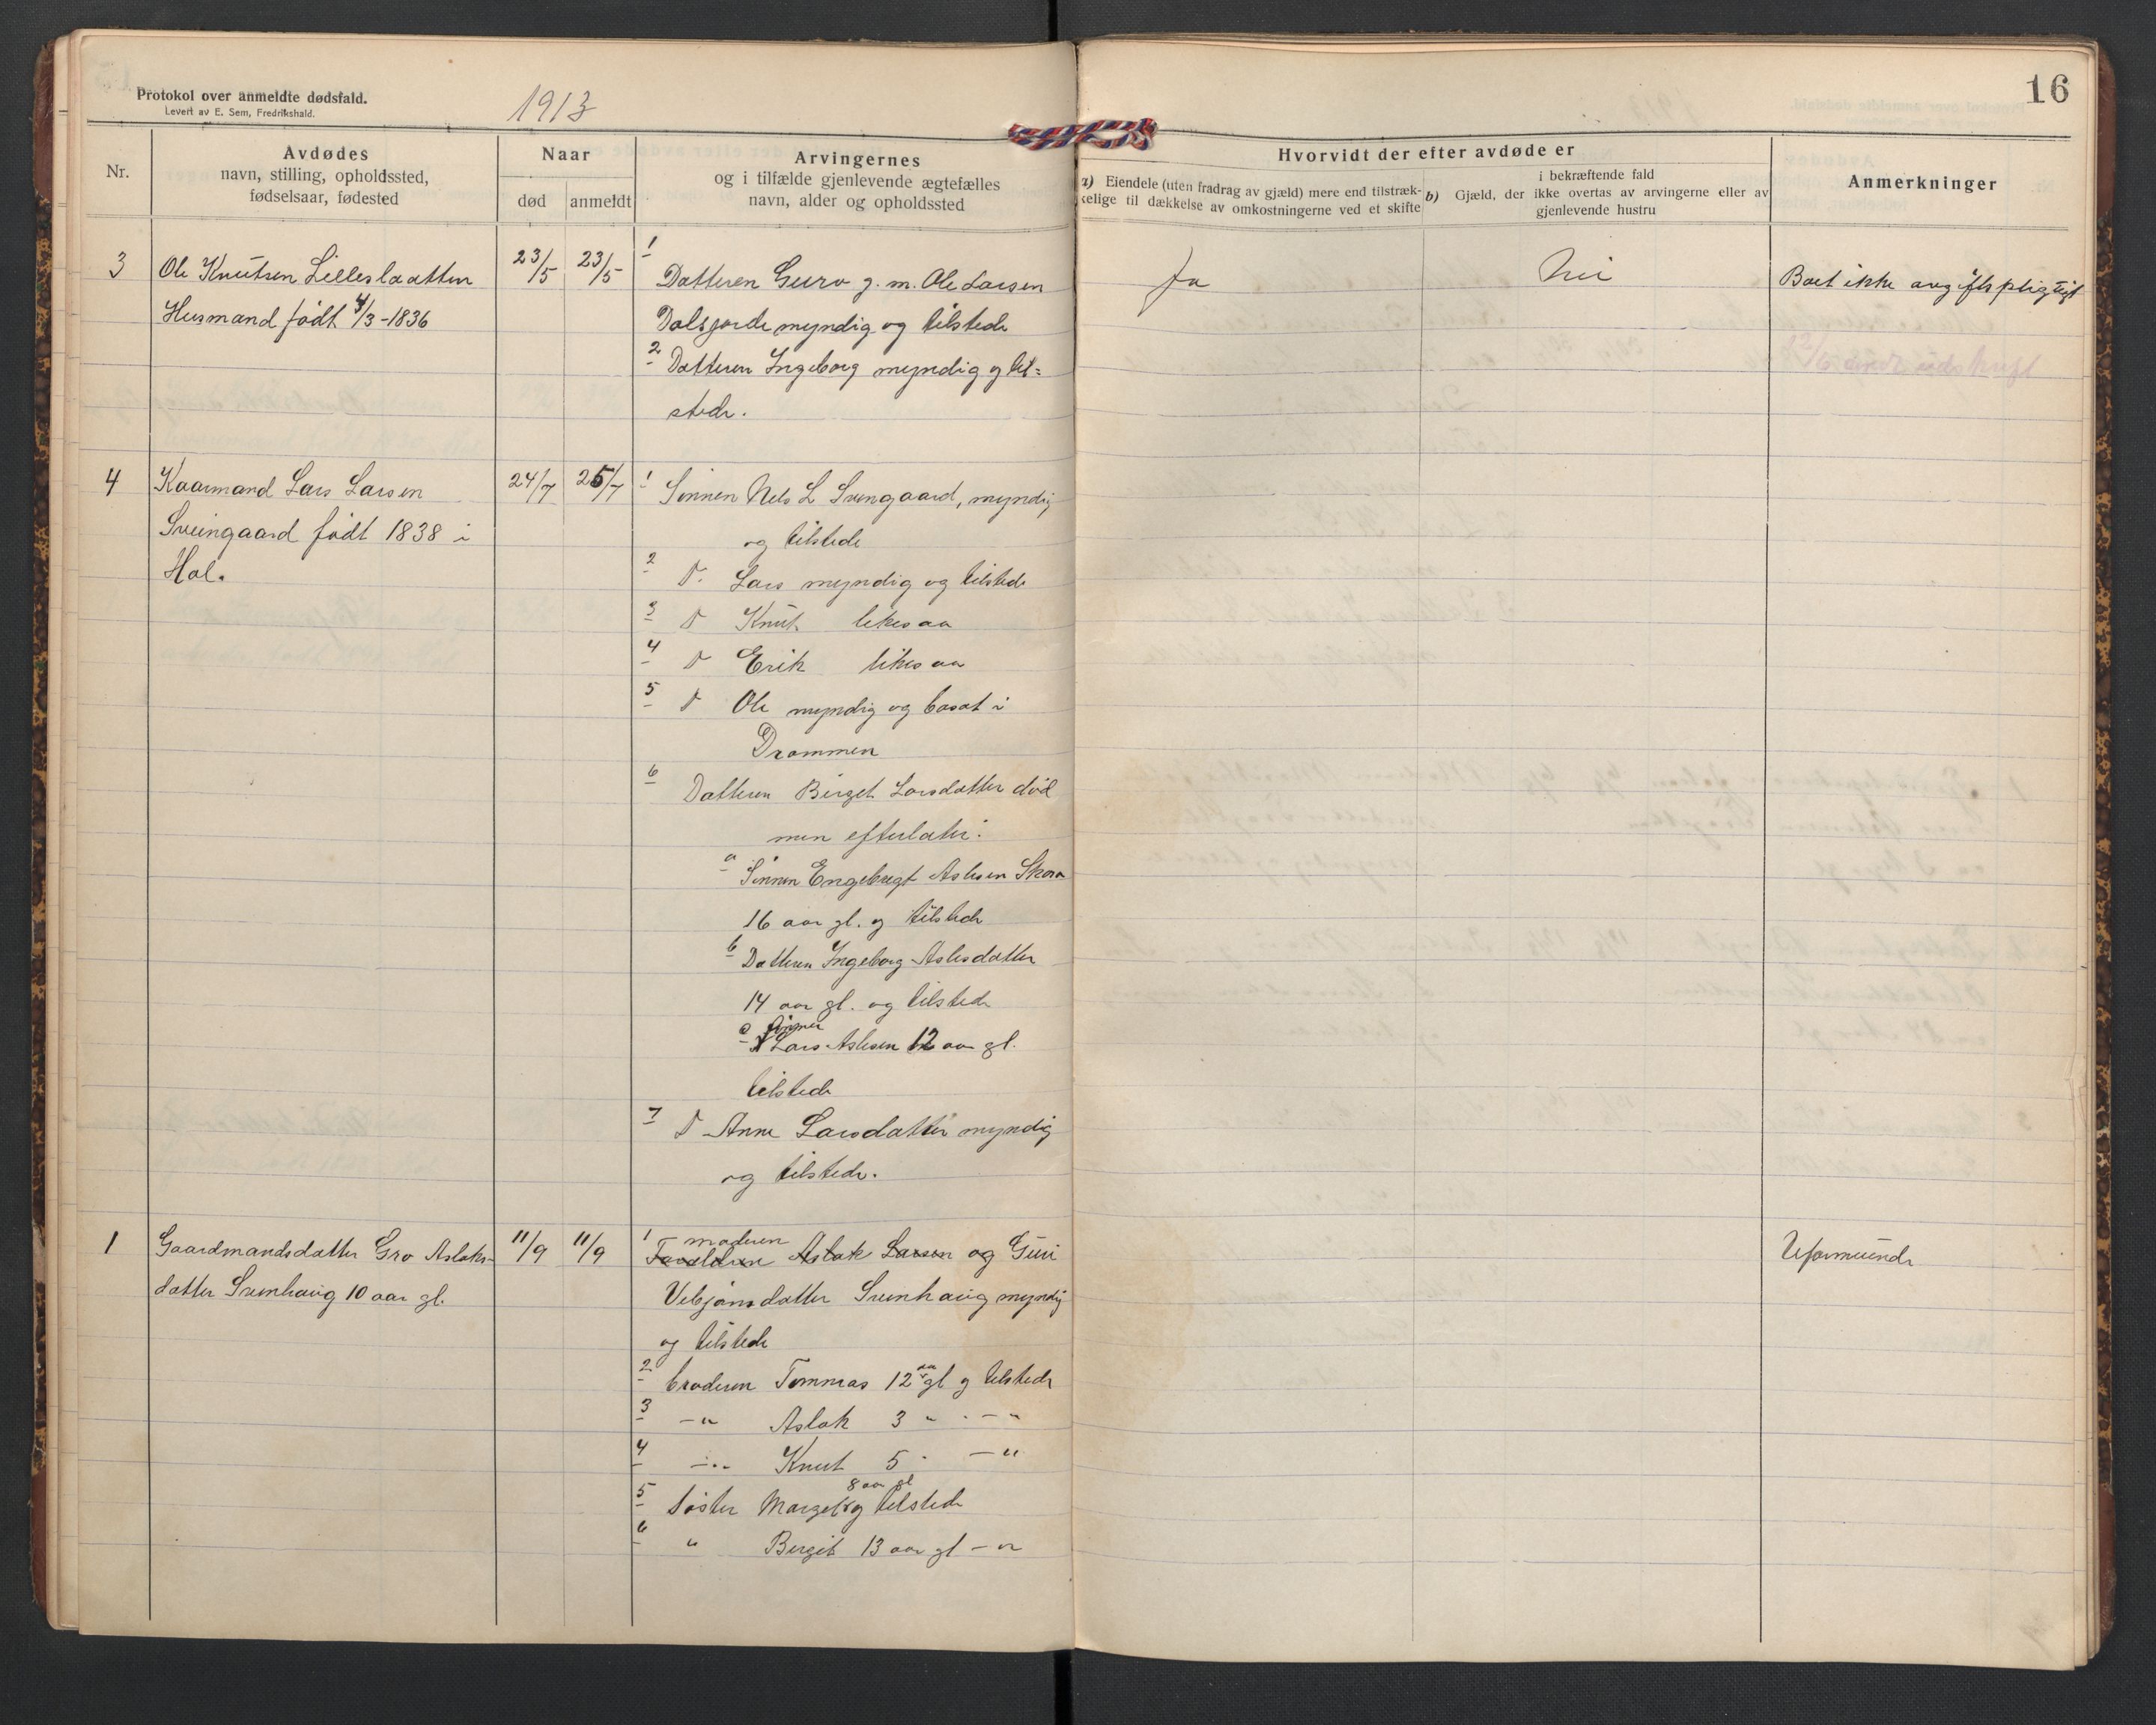 Protokol over anmeldte dødsfald.
Levert av E. Sem, Fredrikshald.
1913
16
Nr.
Avdødes
navn, stilling, opholdssted,
fødselsaar, fødested
Naar
død
anmeldt
Arvingernes
og i tilfælde gjenlevende ægtefælles
navn, alder og opholdssted
Hvorvidt der efter avdøde er
a) Eiendele (uten fradrag av gjæld) mere end tilstræk-
kelige til dækkelse av omkostningerne ved et skifte
i bekræftende fald
b) Gjæld, der ikke overtas av arvingerne eller av
gjenlevende hustru
Anmerkninger
3
Ole Knutsen Lilleslaatten
Husmand født 4/3-1836
23/5
23/5
1
Datteren Guro g. m. Ole Larsen
Dalsjorde myndig og tilstede
2 Datteren Ingeborg myndig og til=
stede.
Ja
Nei
Boet ikke avgiftspligtigt
4
Kaarmand Lars Larsen
Sveingaard født 1838 i
Hol.
24/7
25/7
1 Sønnen Nels L Svengaard, myndig
og tilstede
2 D. Lars myndig og tilstede
3 D Knut likesaa
4 D Erik likesaa
5 D Ole myndig og bosat i
Drammen
6 Datteren Birget Larsdatter død
men efterlater:
a Sønnen Engebregt Aslesen Skora
16 aar gl. og tilstede
b Datteren Ingeborg Aslesdatter
14 aar gl. og tilstede
c sønnen
Lars Aslesen 12 aar gl.
tilstede
7 D Anne Larsdatter myndig
og tilstede.
1
Gaardmandsdatter Gro Aslaks-
datter Svenhaug 10 aar gl.
11/9
11/9
1 moderen
Forældren Aslak Larsen og Guri
Vebjønsdatter Svenhaug myndig
og tilstede
2 broderen Tommas 12 aar gl og tilstede
3 -"- Aslak 3 " - "
4 -"- Knut 5 " - "
8 aar gl
5 søster Marget og tilstede
6 " Birgit 13 aar gl - "
Uformuende